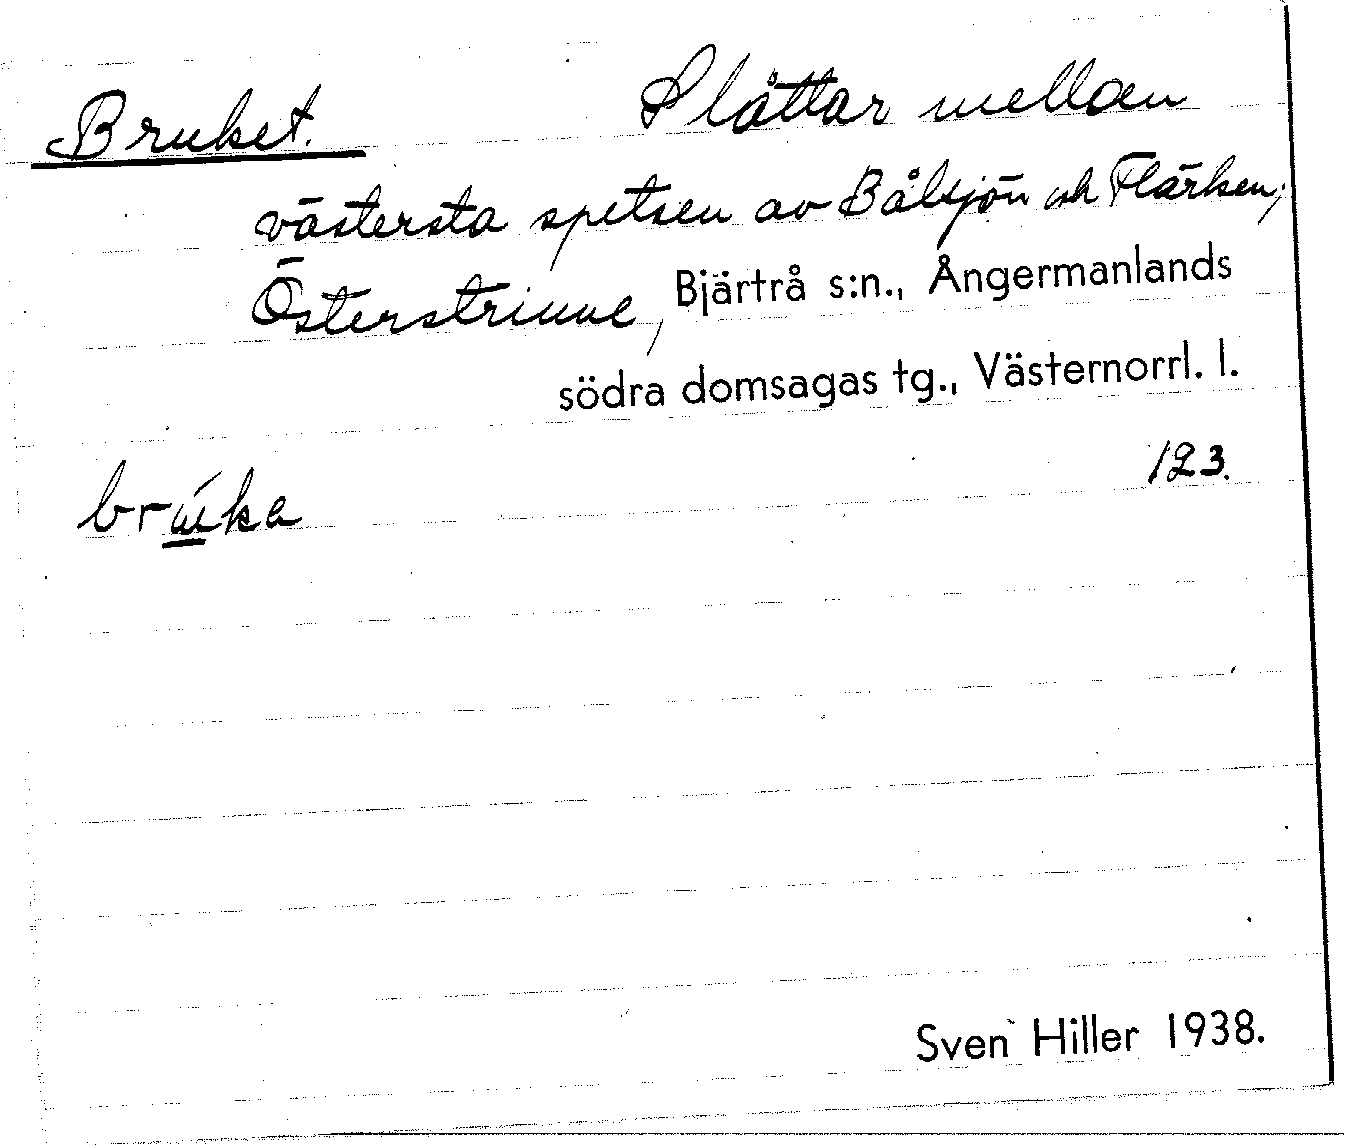 Bruket. Slåttar mellan
västersta spetsen av Bålsjön och Flärken;
Österstrinne, Bjärtrå s:n., Ångermanlands
södra domsagas tg., Västernorrl. l.
123.
brúka
Sven Hiller 1938.